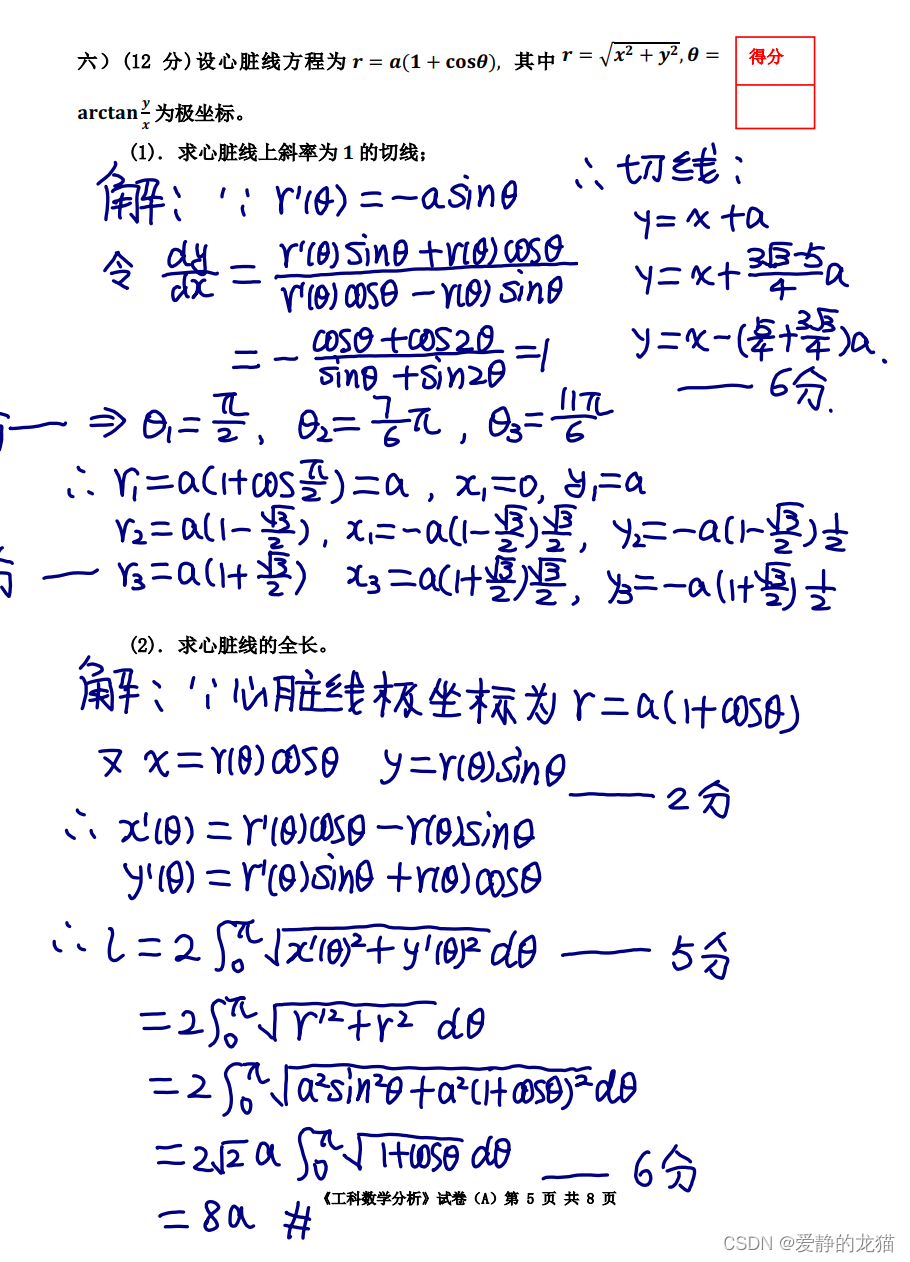 六）(12 分)设心脏线方程为 r = a(1 + cosθ), 其中 r = √(x² + y²), θ =
得分
arctan y/x 为极坐标。
(1). 求心脏线上斜率为 1 的切线;
解: ∵ r'(θ) = -asinθ
令 dy/dx = (r'(θ)sinθ + r(θ)cosθ)/(r'(θ)cosθ - r(θ)sinθ)
= - (cosθ + cos2θ)/(sinθ + sin2θ) = 1
⇒ θ₁ = π/2, θ₂ = 7/6 π, θ₃ = 11π/6
∴ 切线:
y = x + a
y = x + (3√3-5)/4 a
y = x - (5/4 + 3√3/4)a.
—— 6分.
∴ r₁ = a(1+cos π/2) = a, x₁ = 0, y₁ = a
r₂ = a(1 - √3/2), x₁ = -a(1 - √3/2)√3/2, y₂ = -a(1 - √3/2) 1/2
分 —— r₃ = a(1 + √3/2) x₃ = a(1 + √3/2)√3/2, y₃ = -a(1 + √3/2) 1/2
(2). 求心脏线的全长。
解: ∵ 心脏线极坐标为 r = a(1+cosθ)
又 x = r(θ)cosθ y = r(θ)sinθ —— 2分
∴ x'(θ) = r'(θ)cosθ - r(θ)sinθ
y'(θ) = r'(θ)sinθ + r(θ)cosθ
∴ l = 2 ∫₀^π √(x'(θ)² + y'(θ)²) dθ —— 5分
= 2 ∫₀^π √(r'² + r²) dθ
= 2 ∫₀^π √(a²sin²θ + a²(1+cosθ)²) dθ
= 2√2 a ∫₀^π √(1+cosθ) dθ —— 6分
《工科数学分析》试卷（A）第 5 页 共 8 页
= 8a #
CSDN @爱静的龙猫